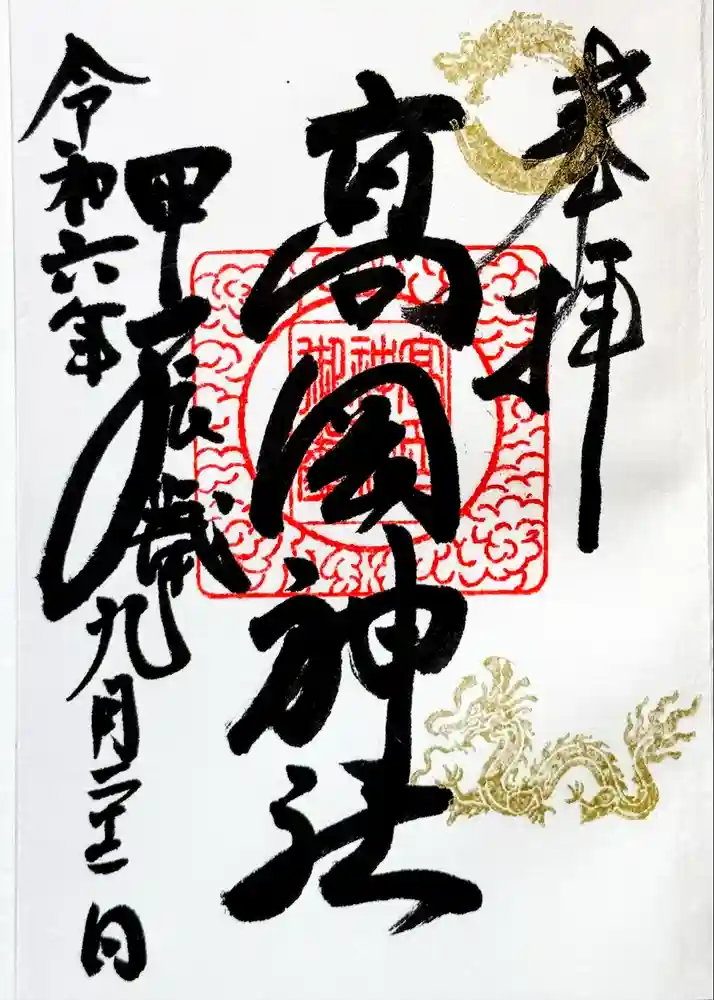 奉拝
高岡神社
甲辰歳
令和六年九月二十二日